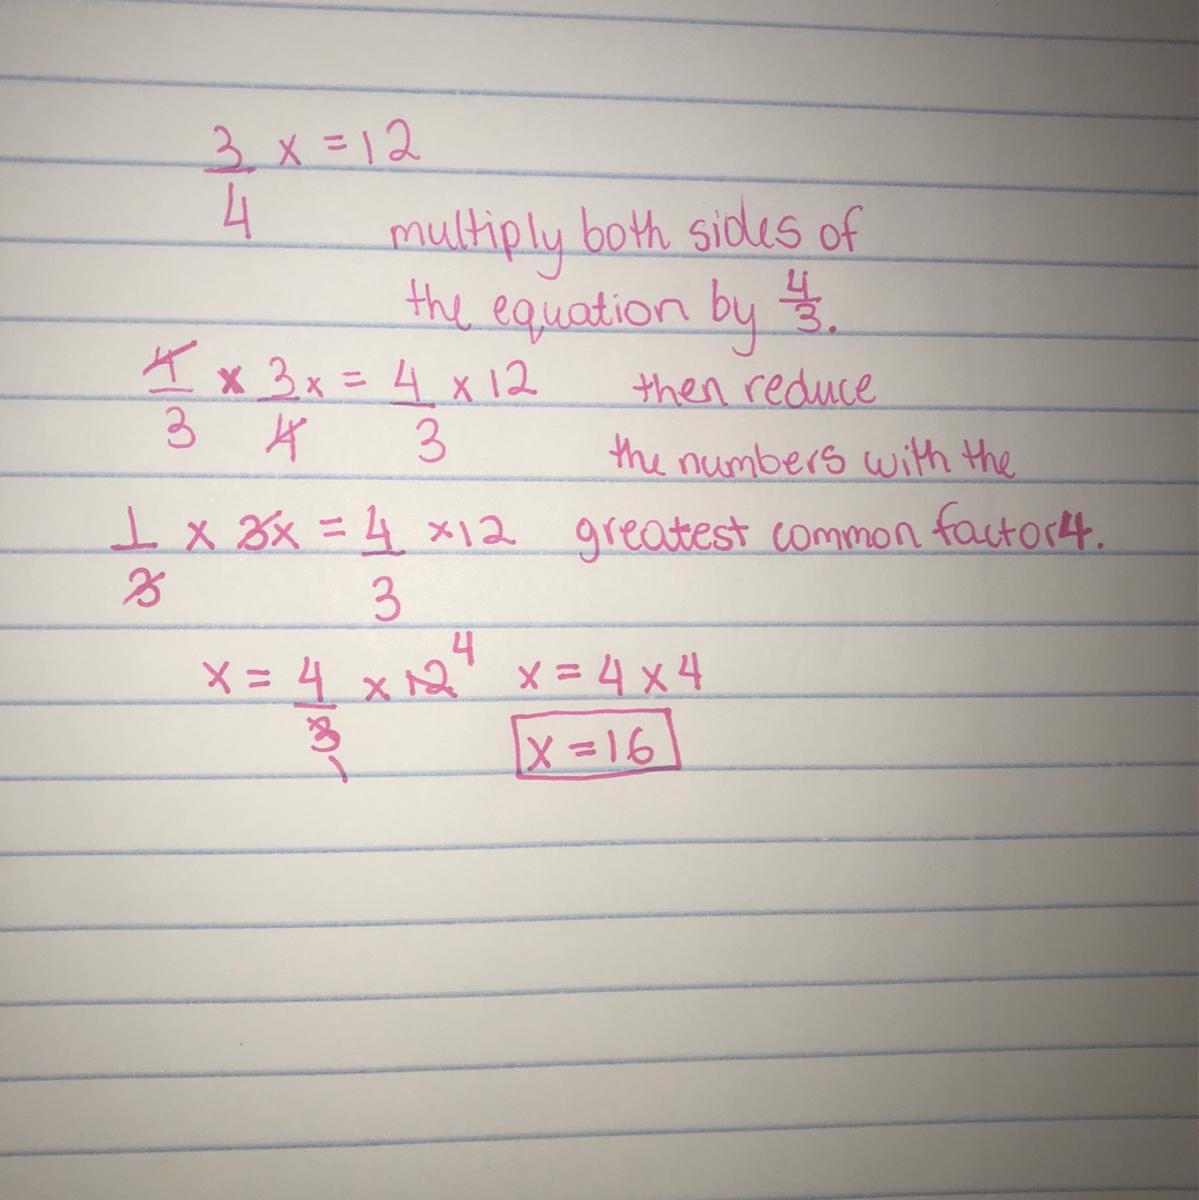 3/4 x = 12
multiply both sides of
the equation by 4/3.
4/3 x 3/4 x = 4/3 x 12 then reduce
the numbers with the
1/3 x 3x = 4/3 x 12 greatest common factor 4.
x = 4/3 1 x 12 4 x = 4 x 4
x = 16